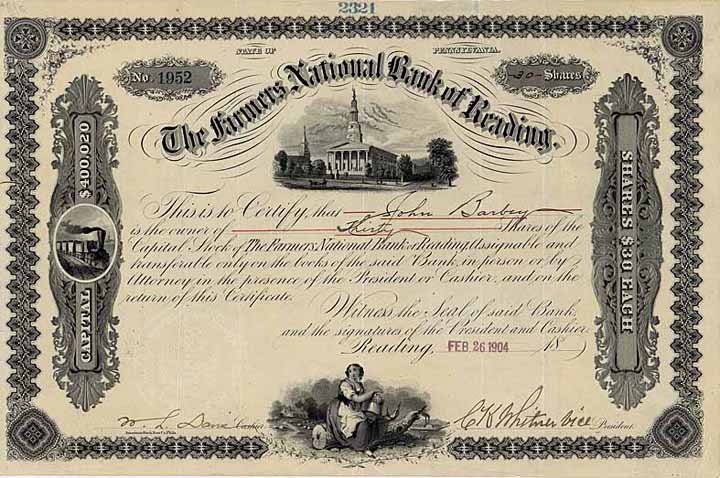 2321
STATE OF PENNSYLVANIA.
No. 1952
30 Shares
The Farmers National Bank of Reading.
CAPITAL $400,020
SHARES $30 EACH
This is to Certify, that John Barbey
is the owner of Thirty Shares of the
Capital Stock of The Farmers National Bank of Reading Assignable and
transferable only on the books of the said Bank, in person or by
Attorney in the presence of the President or Cashier, and on the
return of this Certificate.
Witness the Seal of said Bank,
and the signatures of the President and Cashier.
Reading, FEB 26 1904 18
W. L. Davis Cashier
C K Whitner Vice President.